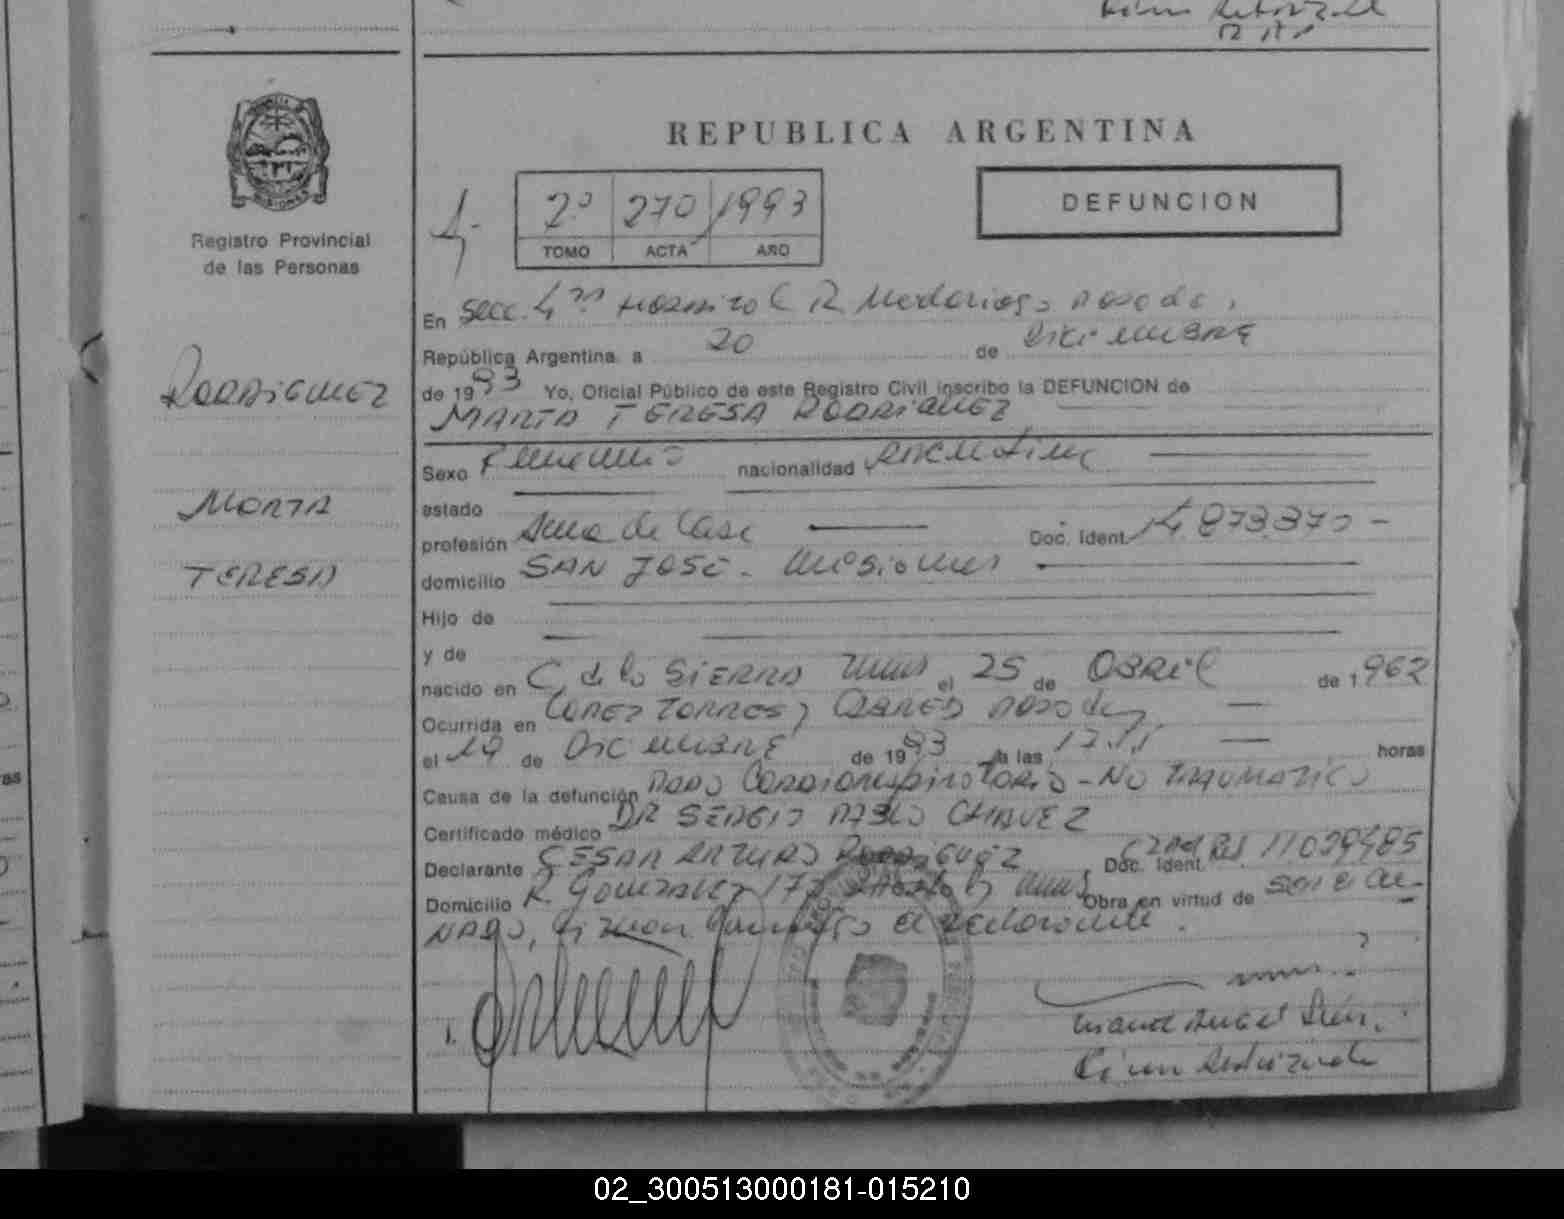 REPUBLICA ARGENTINA
DEFUNCION
2º 270 1993
TOMO ACTA AÑO
PROVINCIA DE MISIONES
Registro Provincial
de las Personas
RODRIGUEZ
MARTA
TERESA
En Secc. 4ta Hospital R Madariaga Posadas,
República Argentina a 20 de Diciembre
de 1993 Yo, Oficial Público de este Registro Civil inscribo la DEFUNCION de
MARTA TERESA RODRIGUEZ
Sexo Femenino nacionalidad Argentina
estado
profesión Ama de Casa Doc. Ident. 14.873.370 -
domicilio SAN JOSE - Misiones
Hijo de
y de
nacido en C. de la SIERRA Mnes el 25 de ABRIL de 1962
Ocurrida en LOPEZ TORRES y Posadas
el 19 de DICIEMBRE de 1993 a las horas
Causa de la defunción PARO CARDIORESPIRATORIO - NO TRAUMATICO
Certificado médico DR SERGIO PABLO CHAVEZ
Declarante CESAR ARTURO RODRIGUEZ Doc. Ident. 11039485
Domicilio R. Gonzalez Mnes Obra en virtud de ser el
el declarante.
Manuel Angel
02_300513000181-015210